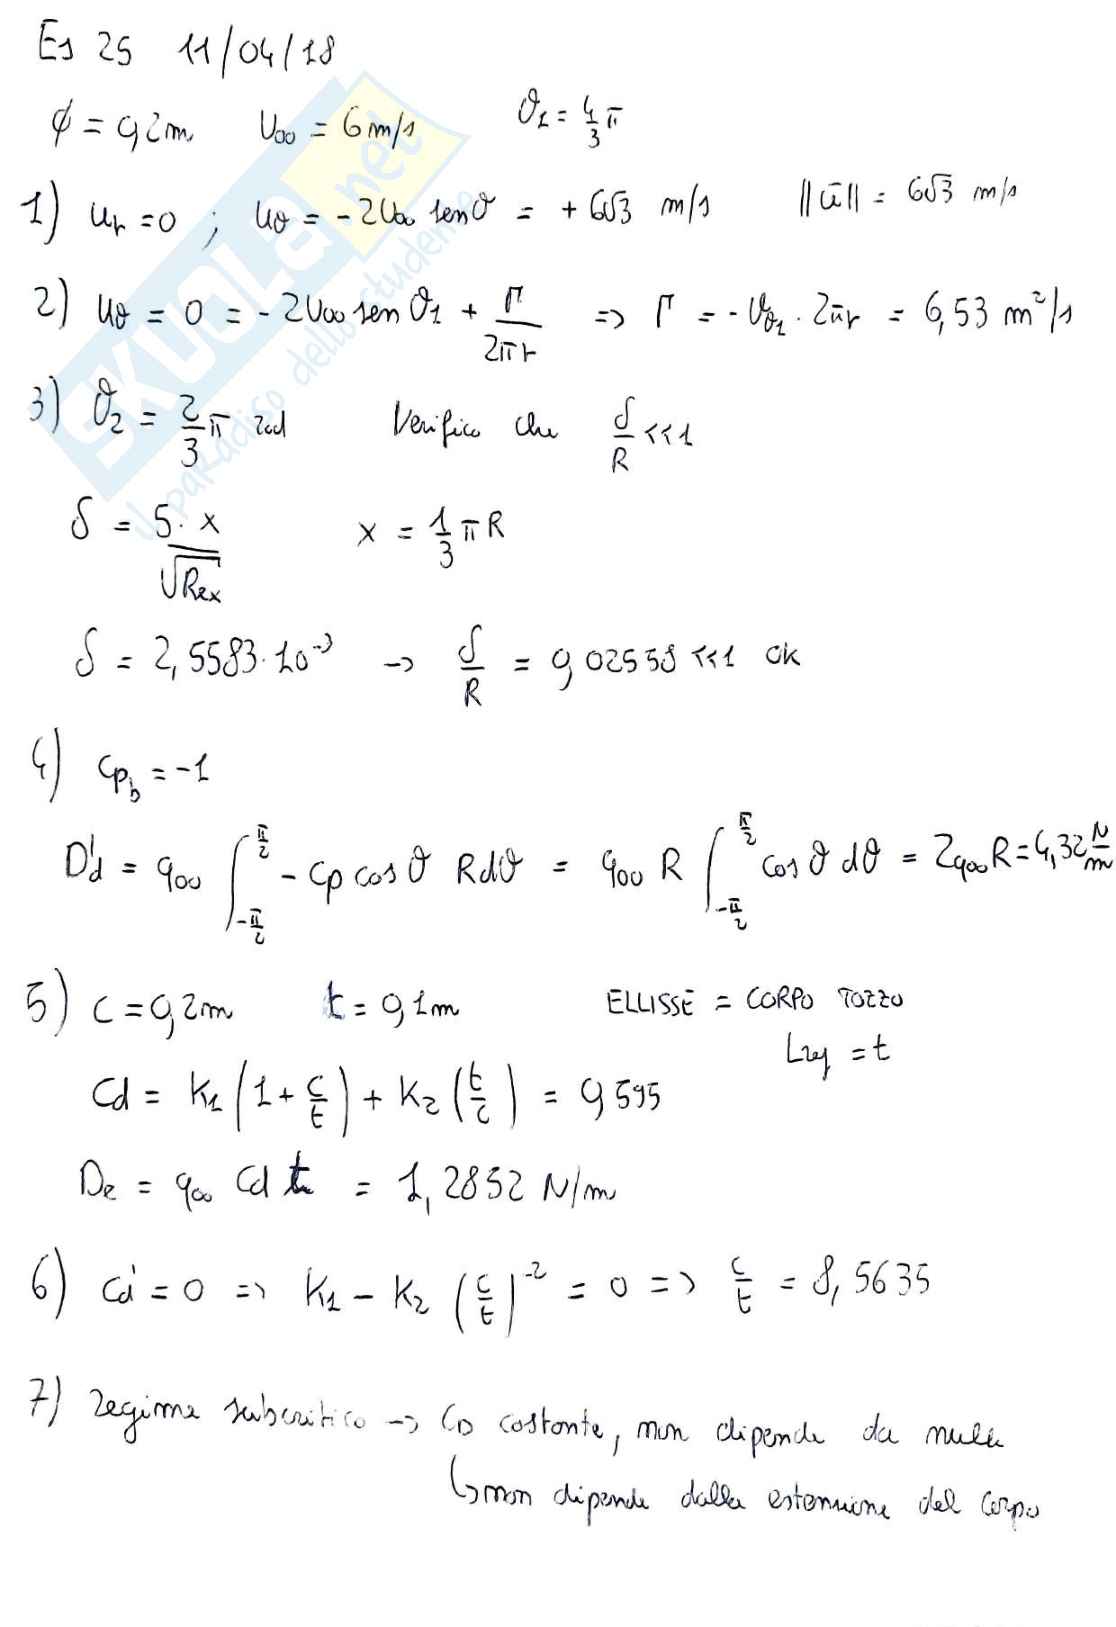 Es 25 11/04/18
ϕ = 0,2m U∞ = 6 m/s ϑ1 = 4/3 π
1) ur = 0 ; uϑ = -2U∞ senϑ = + 6√3 m/s ||ū|| = 6√3 m/s
2) uϑ = 0 = -2U∞ sen ϑ1 + Γ/2πr => Γ = - Uϑ1 · 2πr = 6,53 m²/s
3) ϑ2 = 2/3 π rad Verifico che δ/R <<1
δ = 5·x/√Rex x = 1/3 π R
δ = 2,5583·10⁻³ → δ/R = 0,02558 <<1 ok
4) cpb = -1
D'd = q∞ ∫_{-π/2}^{π/2} - cp cos ϑ R dϑ = q∞ R ∫_{-π/2}^{π/2} cos ϑ dϑ = 2q∞R = 4,32 N/m
5) c = 0,2m t = 0,1m ELLISSE = CORPO TOZZO
Lrif = t
Cd = K1 (1 + c/t) + K2 (t/c) = 0,595
De = q∞ Cd t = 1,2852 N/m
6) Cd' = 0 => K1 - K2 (c/t)⁻² = 0 => c/t = 8,5635
7) regime subcritico → CD costante, non dipende da nulla
↳ non dipende dalla estensione del corpo
SKUOLA.net
il paradiso dello studente